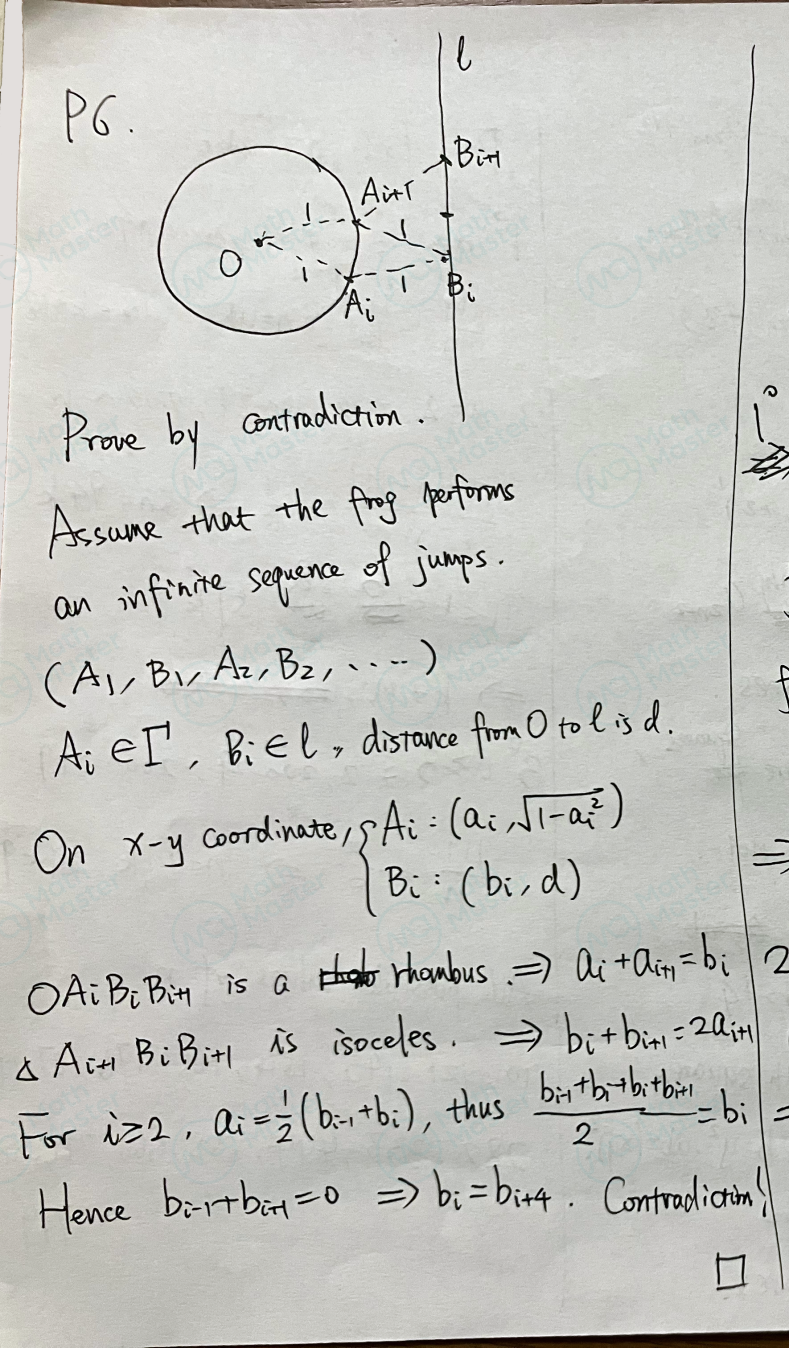 P6.
l
B_{i+1}
A_{i+1}
1
1
O
1
1
B_i
A_i
Prove by contradiction.
Assume that the frog performs
an infinite sequence of jumps.
(A_1, B_1, A_2, B_2, ....)
A_i ∈ Γ, B_i ∈ l, distance from O to l is d.
On x-y coordinate, { A_i : (a_i, √(1-a_i^2))
B_i : (b_i, d)
OA_iB_iB_{i+1} is a rhombus. ⇒ a_i + a_{i+1} = b_i
△ A_{i+1} B_i B_{i+1} is isoceles. ⇒ b_i + b_{i+1} = 2a_{i+1}
For i≥2, a_i = 1/2 (b_{i-1} + b_i), thus (b_{i-1} + b_i + b_i + b_{i+1})/2 = b_i
Hence b_{i-1} + b_{i+1} = 0 ⇒ b_i = b_{i+4}. Contradiction!
□
⇒
2
=